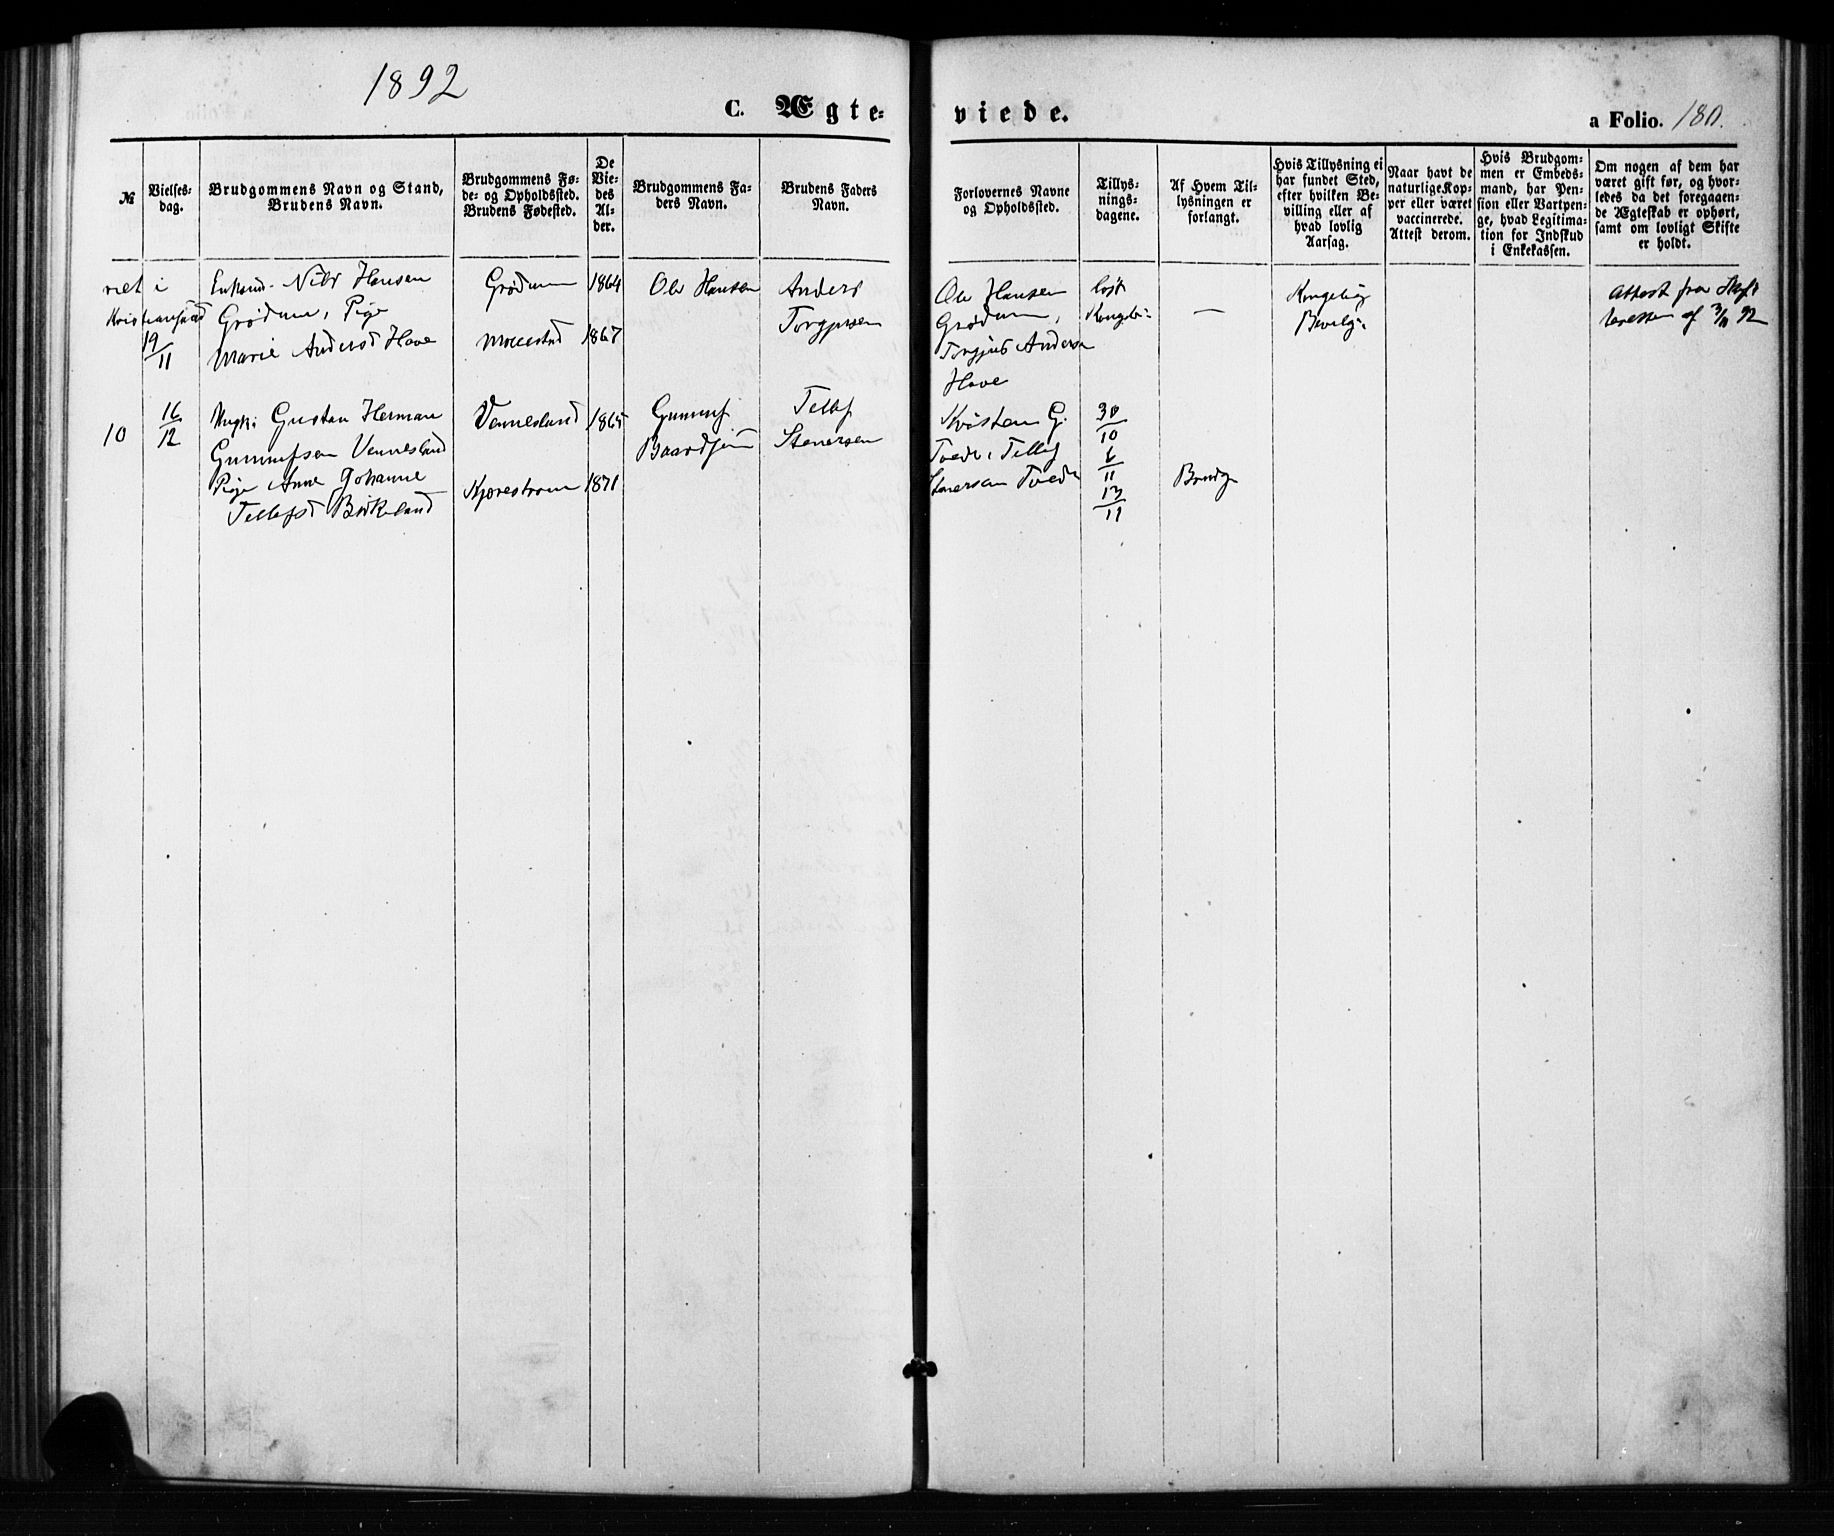 1892
C. Ægte-
viede.
a Folio. 180.
№
Vielses-
dag.
Brudgommens Navn og Stand,
Brudens Navn.
Brudgommens Fø-
de- og Opholdssted.
Brudens Fødested.
De
Vie-
des
Al-
der.
Brudgommens Fa-
ders Navn.
Brudens Faders
Navn.
Forlovernes Navne
og Opholdssted.
Tillys-
nings-
dagene.
Af Hvem Til-
lysningen er
forlangt.
Hvis Tillysning ei
har fundet Sted,
efter hvilken Be-
villing eller af
hvad lovlig
Aarsag.
Naar havt de
naturlige Kop-
per eller været
vaccinerede.
Attest derom.
Hvis Brudgom-
men er Embeds-
mand, har Pen-
sion eller Vartpen-
ge, hvad Legitima-
tion for Indskud
i Enkekassen.
Om nogen af dem har
været gift før, og hvor-
ledes da det foregaaen-
de Ægteskab er ophørt,
samt om lovligt Skifte
er holdt.
viet i
Kristianssand
19/11
Enkemd. Nils Hansen
Grødum, Pige
Marie Andersd Have
Grødum
1864
1867
Ole Hansen
Anders
Torgjusen
Ole Hansen
Grødum,
Torgjus Andersen
Have
løst
Kongebr.
—
Kongelig
Bevilg.
Attest fra Skift
af 3/11 92
10
16/12
Ungk. Gustav Herman
Gunnufsen Vennesland
Pige Anne Johanne
Tellefsd Birkeland
Vennesland
Kjærestrom
1865
1871
Gunnuf
Baardsen
Tellef
Stenersen
Kristen G.
Tvede, Tellef
Stenersen Tvede
30/10
6/11
13/11
Brudg